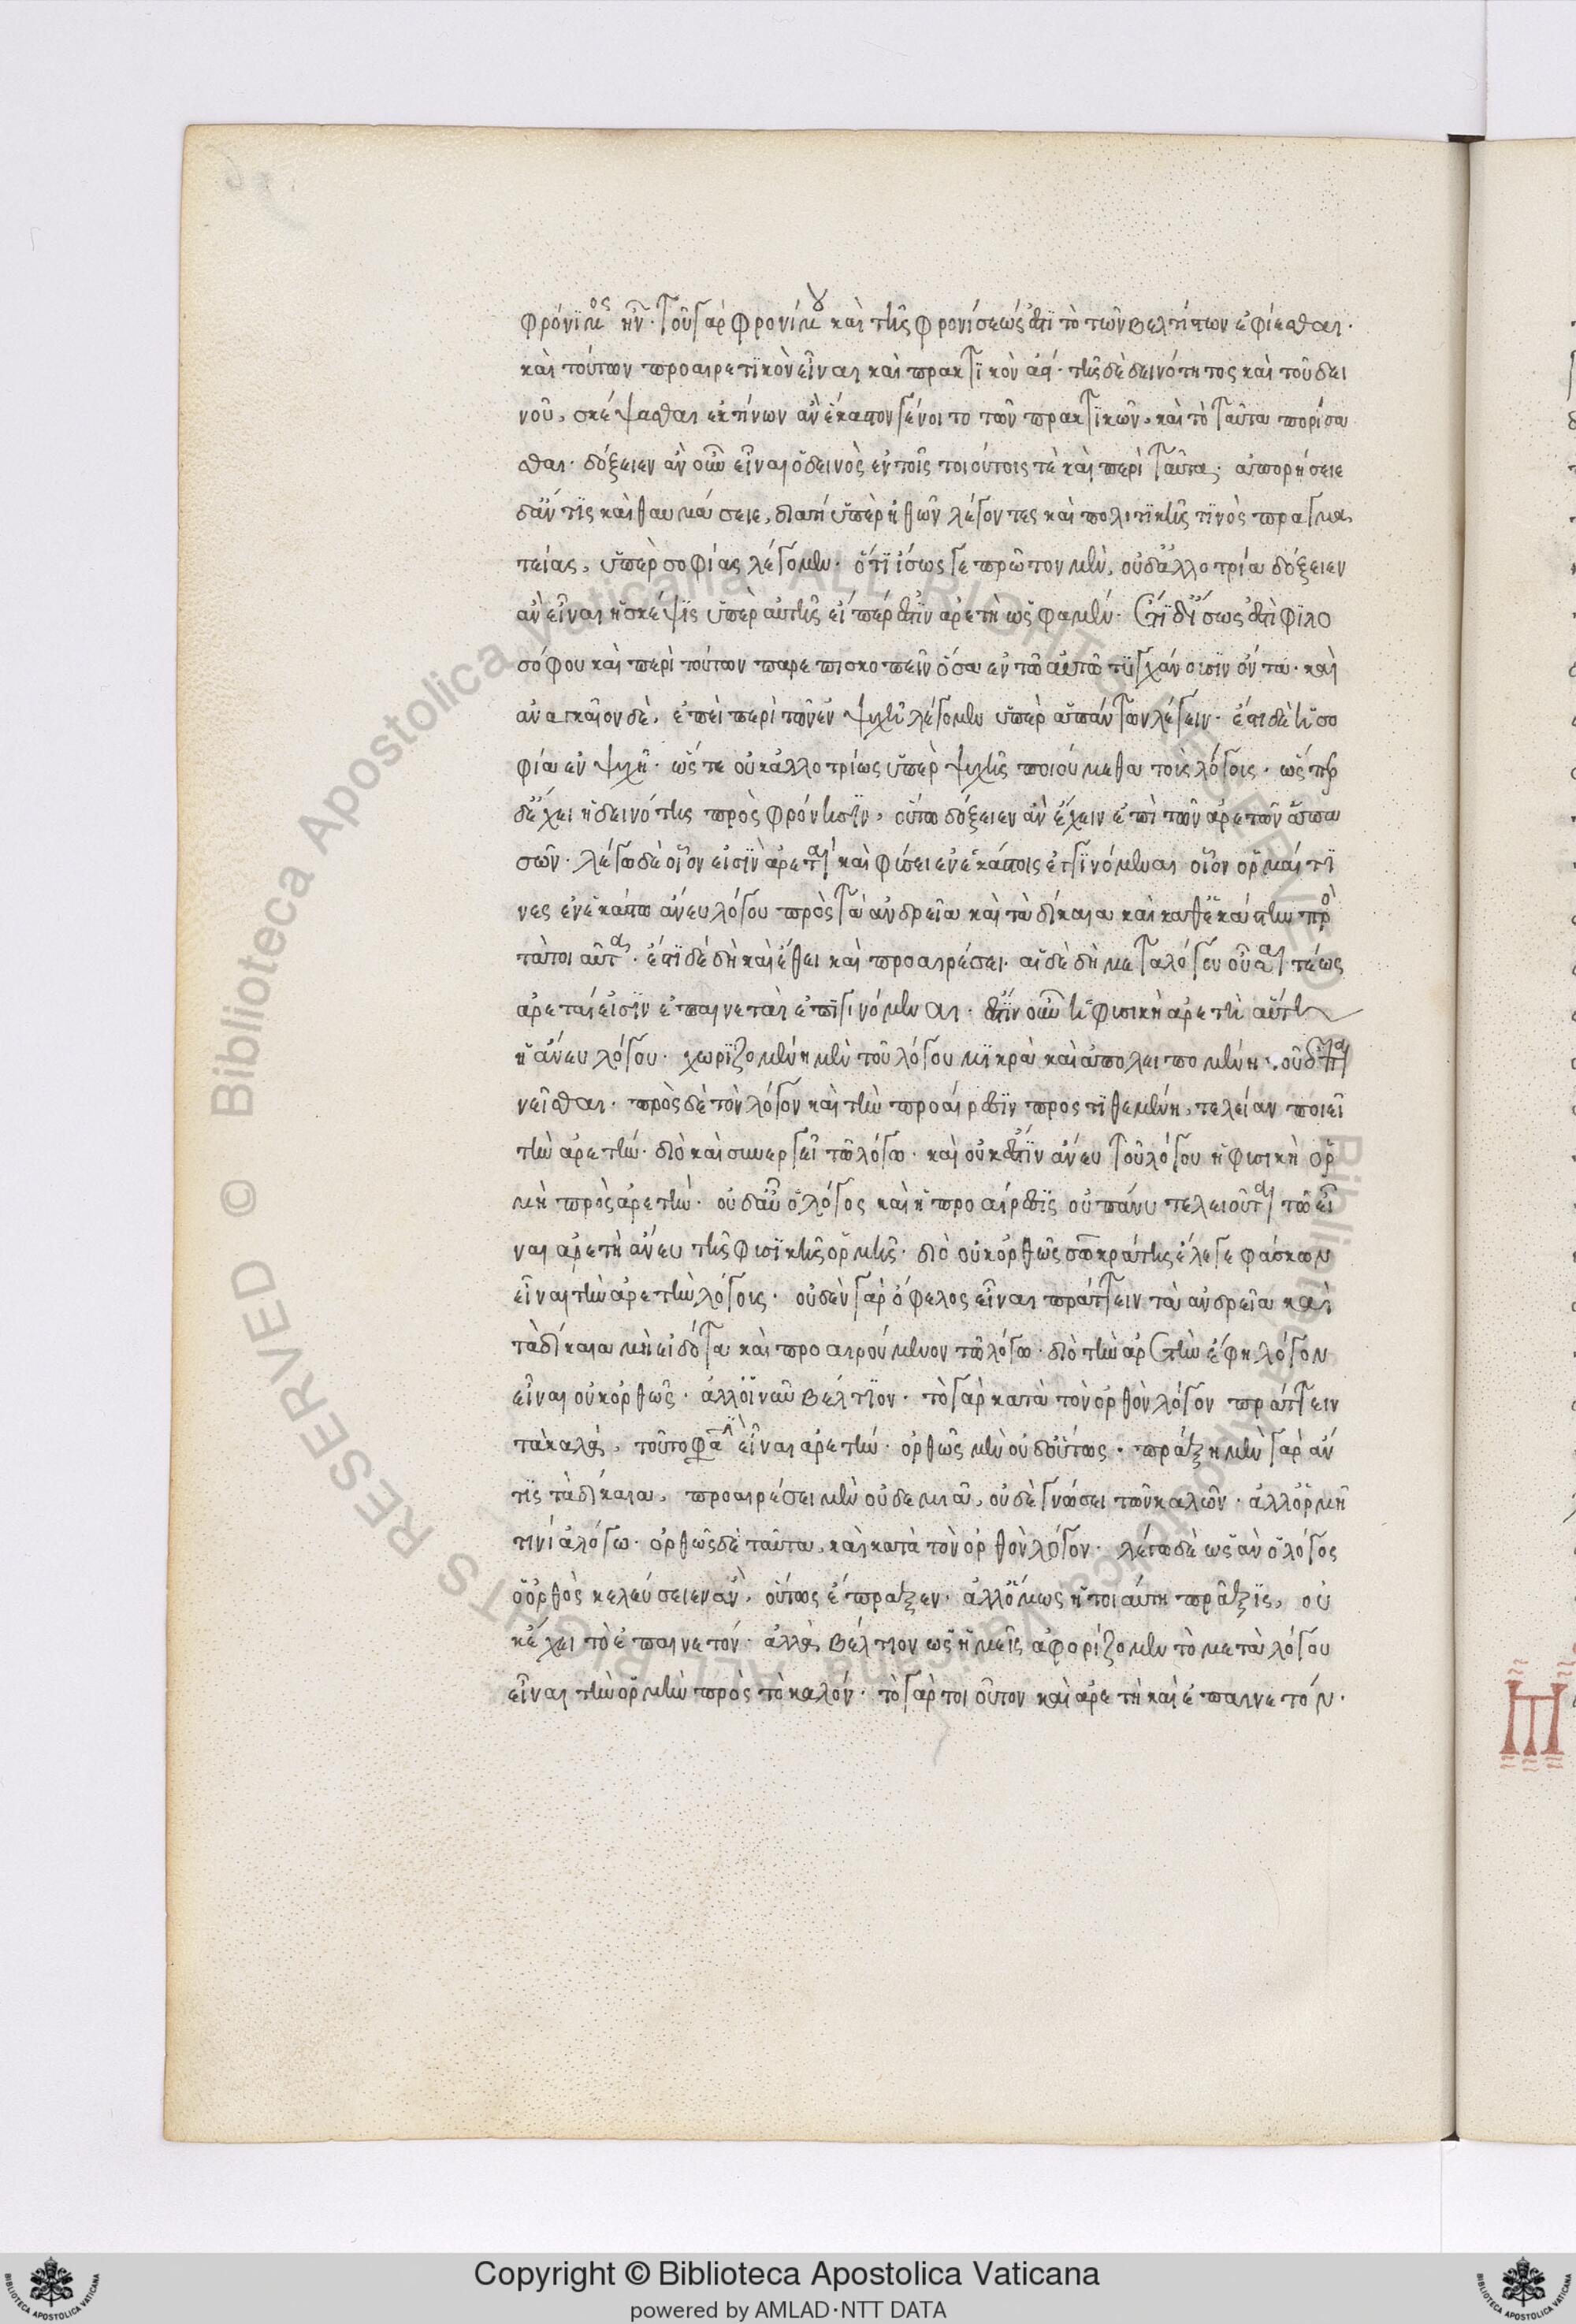 φρόνιμος ἦν· τοῦ γὰρ φρονίμου καὶ τῆς φρονήσεώς ἐστι τὸ τῶν βελτίστων ἐφίεσθαι·
καὶ τούτων προαιρετικὸν εἶναι καὶ πρακτικὸν ἀεί· τῆς δὲ δεινότητος καὶ τοῦ δει
νοῦ, σκέψασθαι ἐκ τίνων ἂν ἕκαστον γένοιτο τῶν πρακτικῶν, καὶ τὸ ταῦτα πορίσα
σθαι· δόξειεν ἂν οὖν εἶναι ὁ δεινὸς ἐν τοῖς τοιούτοις τὲ καὶ περὶ ταῦτα· ἀπορήσειε
δ' ἄν τις καὶ θαυμάσειε, διατί ὑπὲρ ἠθῶν λέγοντες καὶ πολιτικῆς τινὸς πραγμα
τείας, ὑπὲρ σοφίας λέγομεν· ὅτι ἴσως γε πρῶτον μὲν, οὐδ' ἀλλοτρία δόξειεν
ἂν εἶναι ἡ σκέψις ὑπὲρ αὐτῆς εἴπερ ἐστὶν ἀρετὴ ὥς φαμέν· ἔτι δ' ἴσως ἐστὶ φιλο
σόφου καὶ περὶ τούτων παρεπισκοπεῖν ὅσα ἐν τῶ αὐτῶ τυγχάνουσιν ὄντα· καὶ
ἀναγκαῖον δὲ, ἐπεὶ περὶ τῶν ἐν ψυχῆ λέγομεν ὑπὲρ ἁπάντων λέγειν· ἔστι δὲ ἡ σο
φία ἐν ψυχῆ· ὥστε οὐκ ἀλλοτρίως ὑπὲρ ψυχῆς ποιούμεθα τοὺς λόγους· ὥσπερ
δ' ἔχει ἡ δεινότης πρὸς φρόνησιν, οὕτω δόξειεν ἂν ἔχειν ἐπὶ τῶν ἀρετῶν ἁπα
σῶν· λέγω δὲ οἷον εἰσὶν ἀρεταὶ καὶ φύσει ἐν ἑκάστοις ἐγγινόμεναι οἷον ὁρμαί τι
νες ἐν ἑκάστω ἄνευ λόγου πρὸς τὰ ἀνδρεῖα καὶ τὰ δίκαια καὶ καθ' ἑκάστην πρὸ
τὰ τοιαῦτα· ἔτι δὲ δὴ καὶ ἔθει καὶ προαιρέσει· αἱ δὲ δὴ μετὰ λόγου οὖσαι τέως
ἀρεταί εἰσιν ἐπαινεταὶ ἐπιγινόμεναι· ἔστιν οὖν ἡ φυσικὴ ἀρετὴ αὕτη
ἡ ἄνευ λόγου· χωριζομένη μὲν τοῦ λόγου μικρὰ καὶ ἀπολειπομένη· τοῦ ἐπαι
νεῖσθαι· πρὸς δὲ τὸν λόγον καὶ τὴν προαίρεσιν προστιθεμένη, τελείαν ποιεῖ
τὴν ἀρετήν· διὸ καὶ συνεργεῖ τῶ λόγω· καὶ οὐκ ἔστιν ἄνευ τοῦ λόγου ἡ φυσικὴ ὁρ
μὴ πρὸς ἀρετήν· οὐδ' αὖ ὁ λόγος καὶ ἡ προαίρεσις οὐ πάνυ τελειοῦται τῶ εἶ
ναι ἀρετὴ ἄνευ τῆς φυσικῆς ὁρμῆς· διὸ οὐκ ὀρθῶς σωκράτης ἔλεγε φάσκων
εἶναι τὴν ἀρετὴν λόγοις· οὐδὲν γὰρ ὄφελος εἶναι πράττειν τὰ ἀνδρεῖα καὶ
τὰ δίκαια μὴ εἰδότα καὶ προαιρούμενον τῶ λόγω· διὸ τὴν ἀρετὴν ἔφη λόγον
εἶναι οὐκ ὀρθῶς· ἀλλ' οἱ νῦν βέλτιον· τὸ γὰρ κατὰ τὸν ὀρθὸν λόγον πράττειν
τὰ καλά, τοῦτο φασὶν εἶναι ἀρετήν· ὀρθῶς μὲν οὐδ' οὕτως· πράξη μὲν γὰρ ἄν
τις τὰ δίκαια, προαιρέσει μὲν οὐδεμιᾶ, οὐδὲ γνώσει τῶν καλῶν· ἀλλ' ὁρμῆ
τινί ἀλόγω· ὀρθῶς δὲ ταῦτα, καὶ κατὰ τὸν ὀρθὸν λόγον· λέγω δὲ ὡς ἂν ὁ λόγος
ὁ ὀρθὸς κελεύσειεν ἂν, οὕτως ἔπραξεν· ἀλλ' ὅμως ἡ τοιαύτη πρᾶξις, οὐ
κ ἔχει τὸ ἐπαινετόν· ἀλλὰ βέλτιον ὡς ἡμεῖς ἀφορίζομεν τὸ μετὰ λόγου
εἶναι τὴν ὁρμὴν πρὸς τὸ καλόν· τὸ γὰρ τοιοῦτον καὶ ἀρετὴ καὶ ἐπαινετόν·
Copyright © Biblioteca Apostolica Vaticana
powered by AMLAD·NTT DATA